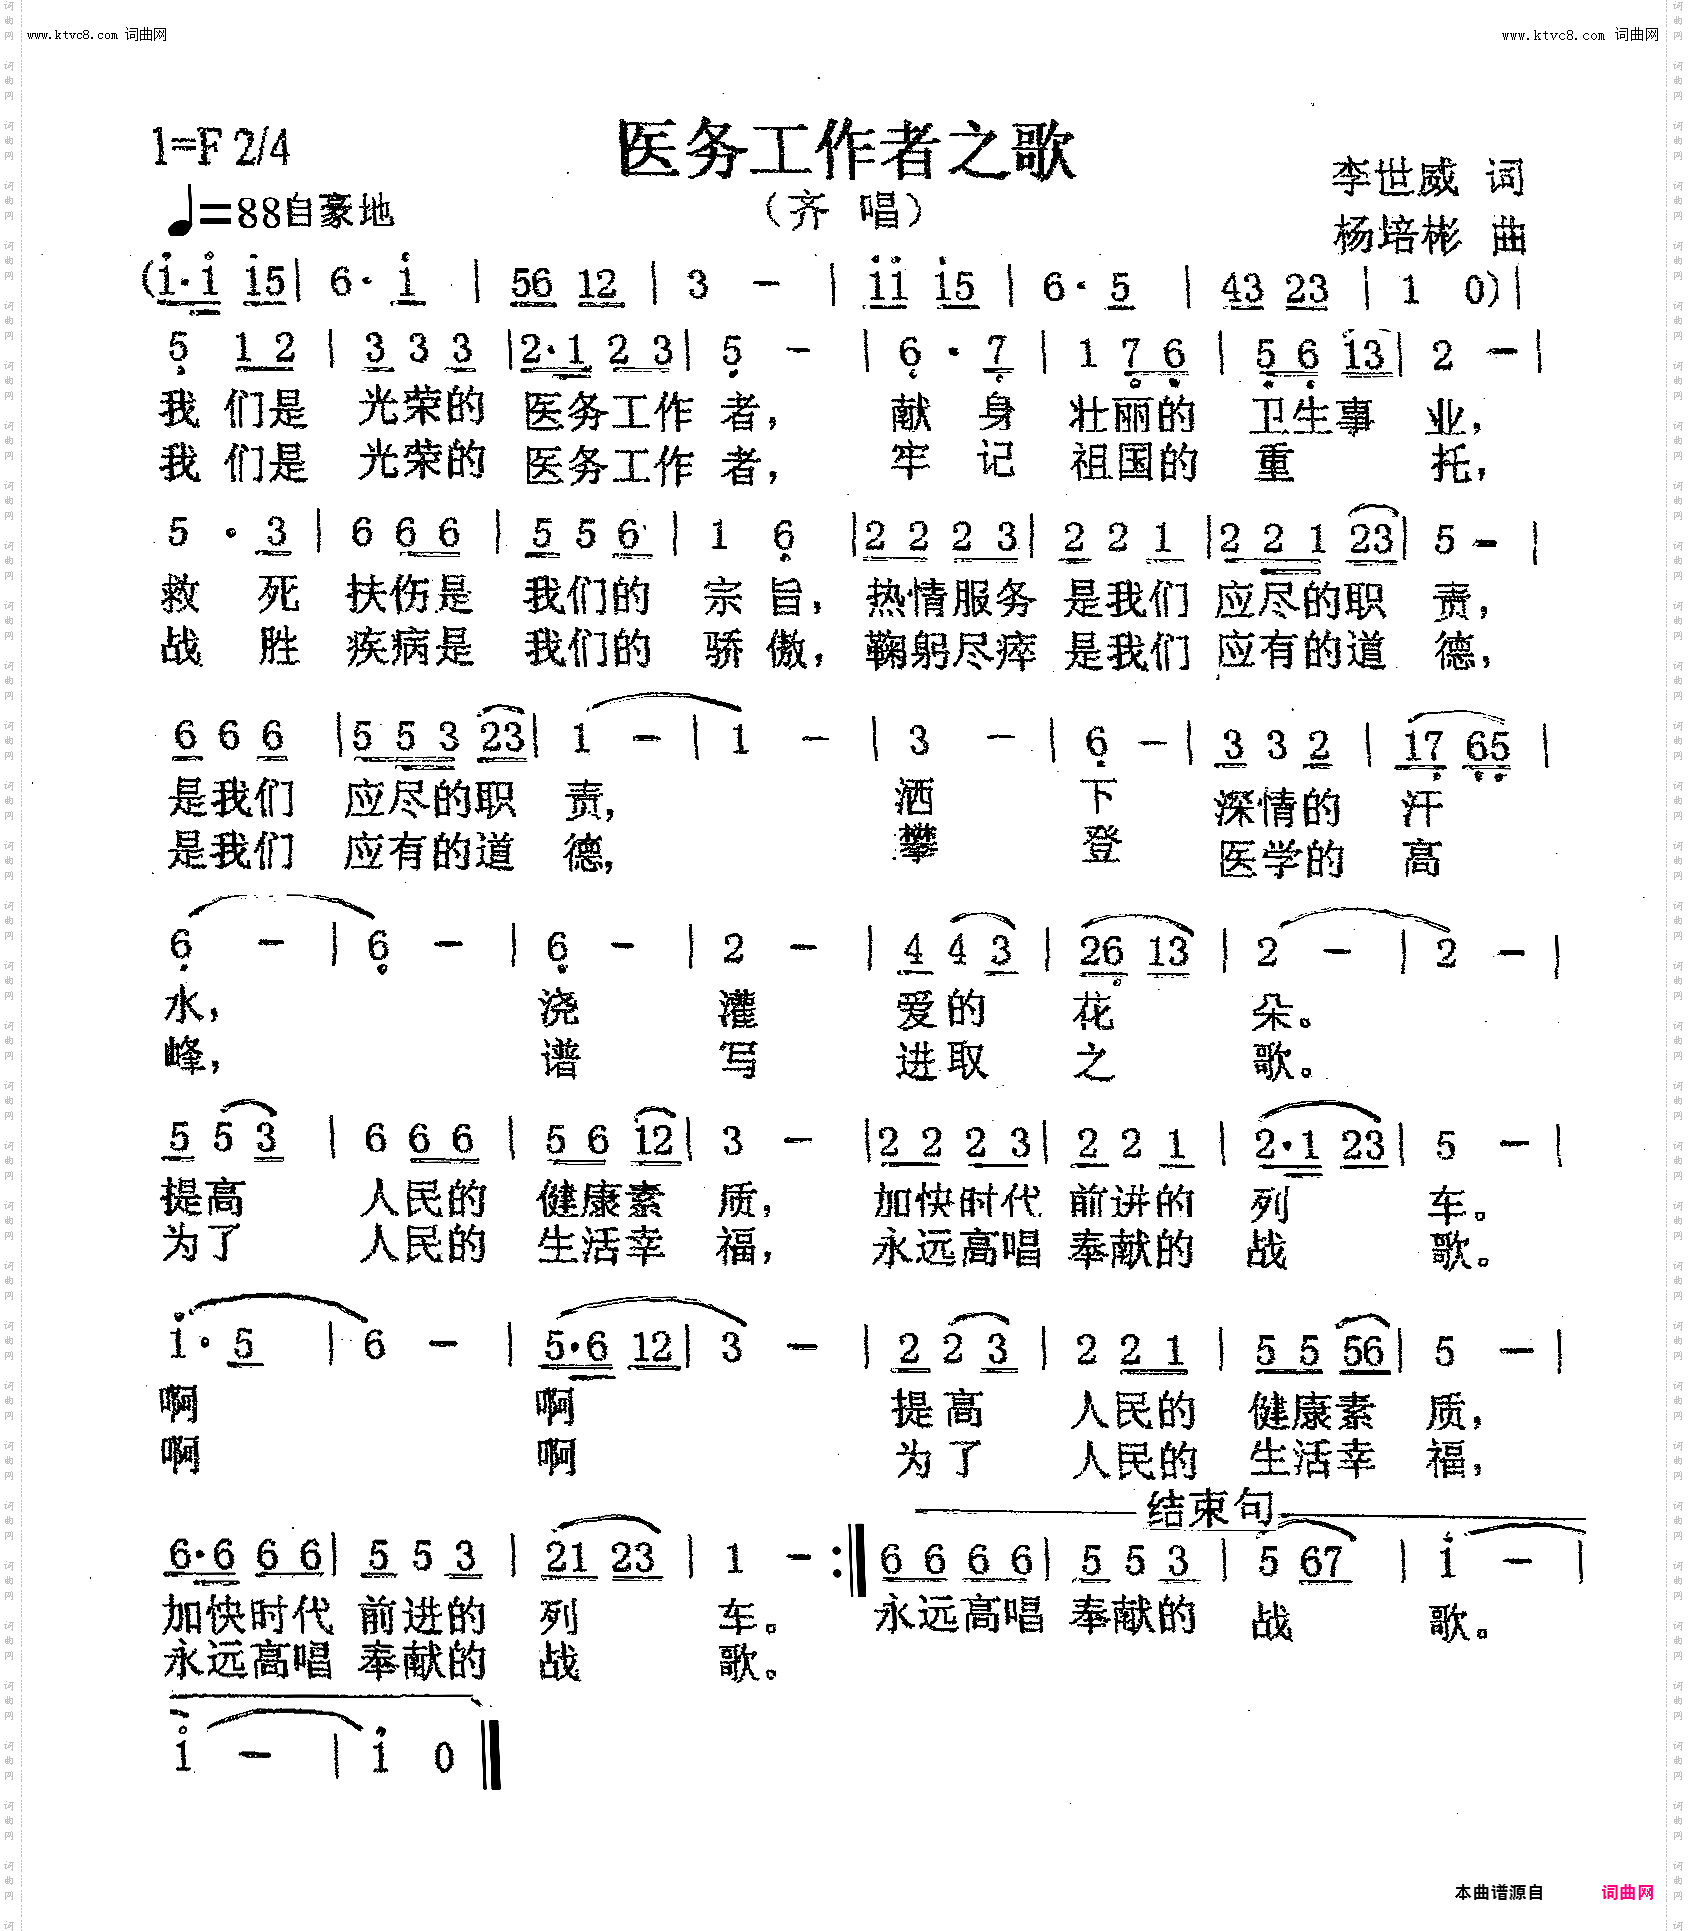 www.ktvc8.com 词曲网
www.ktvc8.com 词曲网
医务工作者之歌
1=F 2/4
♩=88自豪地
（齐 唱）
李世威 词
杨培彬 曲
(i·i i5 | 6· i | 56 12 | 3 － | ii i5 | 6· 5 | 43 23 | 1 0)|
5 1 2 | 3 3 3 | 2·1 2 3 | 5 － | 6 · 7 | 1 7 6 | 5 6 13 | 2 － |
我 们是 光荣的 医务工作 者, 献 身 壮丽的 卫生事 业,
我 们是 光荣的 医务工作 者, 牢 记 祖国的 重 托,
5 · 3 | 6 6 6 | 5 5 6 | 1 6 | 2 2 2 3 | 2 2 1 | 2 2 1 23 | 5 － |
救 死 扶伤是 我们的 宗 旨, 热情服务 是我们 应尽的职 责,
战 胜 疾病是 我们的 骄 傲, 鞠躬尽瘁 是我们 应有的道 德,
6 6 6 | 5 5 3 23 | 1 － | 1 － | 3 － | 6 － | 3 3 2 | 17 65 |
是我们 应尽的职 责, 洒 下 深情的 汗
是我们 应有的道 德, 攀 登 医学的 高
6 － | 6 － | 6 － | 2 － | 4 4 3 | 26 13 | 2 － | 2 － |
水, 浇 灌 爱的 花 朵。
峰, 谱 写 进取 之 歌。
5 5 3 | 6 6 6 | 5 6 12 | 3 － | 2 2 2 3 | 2 2 1 | 2·1 23 | 5 － |
提高 人民的 健康素 质, 加快时代 前进的 列 车。
为了 人民的 生活幸 福, 永远高唱 奉献的 战 歌。
i· 5 | 6 － | 5·6 12 | 3 － | 2 2 3 | 2 2 1 | 5 5 56 | 5 － |
啊 啊 提高 人民的 健康素 质,
啊 啊 为了 人民的 生活幸 福,
结束句
6·6 6 6 | 5 5 3 | 21 23 | 1 － :‖ 6 6 6 6 | 5 5 3 | 5 67 | i － |
加快时代 前进的 列 车。 永远高唱 奉献的 战 歌。
永远高唱 奉献的 战 歌。
i － | i 0 ‖
本曲谱源自 词曲网